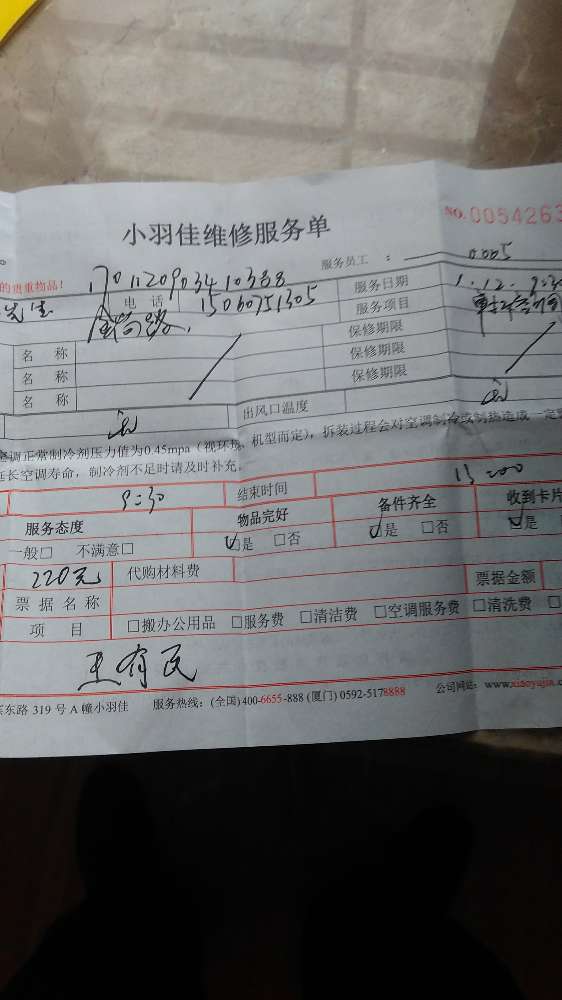 小羽佳维修服务单
NO.0054263
的贵重物品!
1701120903410388
服务员工 : 0.005
先生
电 话
15060751305
服务日期
1.12.9:30
服务项目
名 称
保修期限
名 称
保修期限
名 称
保修期限
出风口温度
空调正常制冷剂压力值为0.45mpa(视环境、机型而定),拆装过程会对空调制冷或制热造成一定
延长空调寿命,制冷剂不足时请及时补充。
9:30
结束时间
13:00
服务态度
物品完好
备件齐全
收到卡片
一般□ 不满意□
☑是 □否
☑是 □否
☑是
220元
代购材料费
票据名称
票据金额
项 目
□搬办公用品 □服务费 □清洁费 □空调服务费 □清洗费
王有民
东路 319 号 A 幢小羽佳
服务热线:(全国)400-6655-888 (厦门) 0592-5178888
公司网站: www.xiaoyujia.c